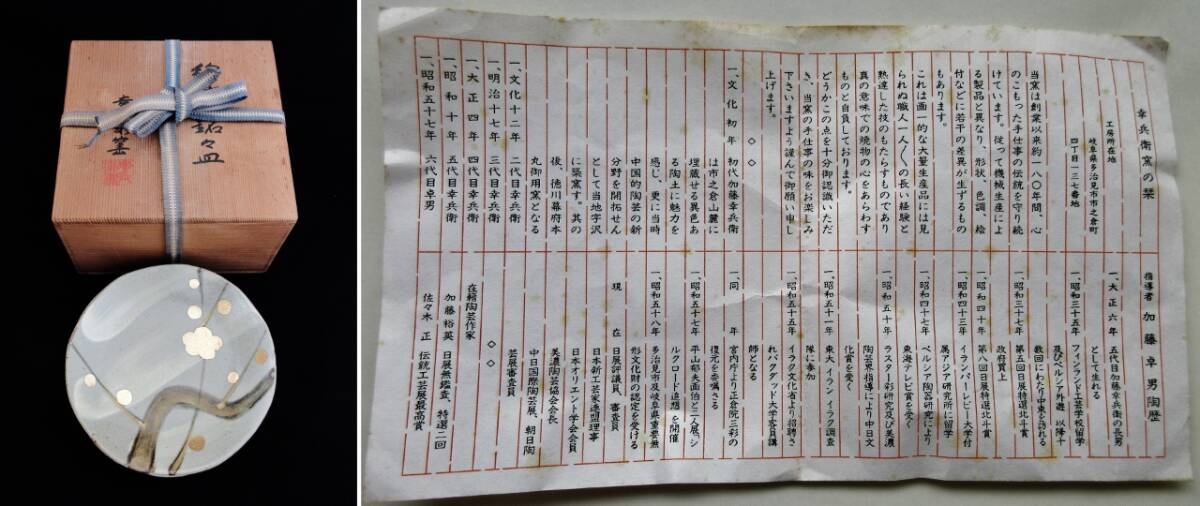 銘々皿
幸兵衛窯の栞
工房所在地
岐阜県多治見市市之倉町
四丁目一三七番地
当窯は創業以来約一八〇年間、心
のこもった手仕事の伝統を守り続
けています。従って機械生産によ
る製品と異なり、形状、色調、絵
付などに若干の差異が生ずるもの
もあります。
これは画一的な大量生産品には見
られぬ職人一人〱の長い経験と
熟達した技のもたらすものであり
真の意味での焼物の心をあらわす
ものと自負しております。
どうかこの点を十分御認識いただ
き、当窯の手仕事の味をお楽しみ
下さいますよう謹んで御願い申し
上げます。
◇ ◇
一、文化初年 初代加藤幸兵衛
は市之倉山麓に
埋蔵せる異色あ
る陶土に魅力を
感じ、更に当時
中国的陶芸の新
分野を開拓せん
として当地字沢
に築窯す。其の
後、徳川幕府本
丸御用窯となる
一、文化十二年 二代目幸兵衛
一、明治十七年 三代目幸兵衛
一、大正四年 四代目幸兵衛
一、昭和十年 五代目幸兵衛
一、昭和五十七年 六代目卓男
指導者 加藤卓男陶歴
一、大正六年 五代目加藤幸兵衛の長男
として生れる
一、昭和三十五年 フィンランド工芸学校留学
及びペルシア外遊 以降十
数回にわたり中東を訪れる
一、昭和三十七年 第五回日展特選北斗賞
政府買上
一、昭和四十年 第八回日展特選北斗賞
一、昭和四十三年 イランパーレビー大学付
属アジア研究所に留学
一、昭和四十七年 ペルシア陶器研究により
東海テレビ賞を受く
一、昭和五十年 ラスター彩研究及び美濃
陶芸界指導により中日文
化賞を受く
一、昭和五十一年 東大イラン イラク調査
隊に参加
一、昭和五十五年 イラク文化省より招聘さ
れバクダッド大学客員講
師となる
一、同 年 宮内庁より正倉院三彩の
復元を委嘱さる
一、昭和五十七年 平山郁夫画伯と二人展、シ
ルクロード追想を開催
一、昭和五十八年 多治見市及岐阜県重要無
形文化財の認定を受ける
現 在 日展評議員、審査員
日本新工芸家連盟理事
日本オリエント学会会員
美濃陶芸協会会長
中日国際陶芸展、朝日陶
芸展審査員
◇ ◇
在籍陶芸作家
加藤裕英 日展無鑑査、特選二回
佐々木 正 伝統工芸展最高賞